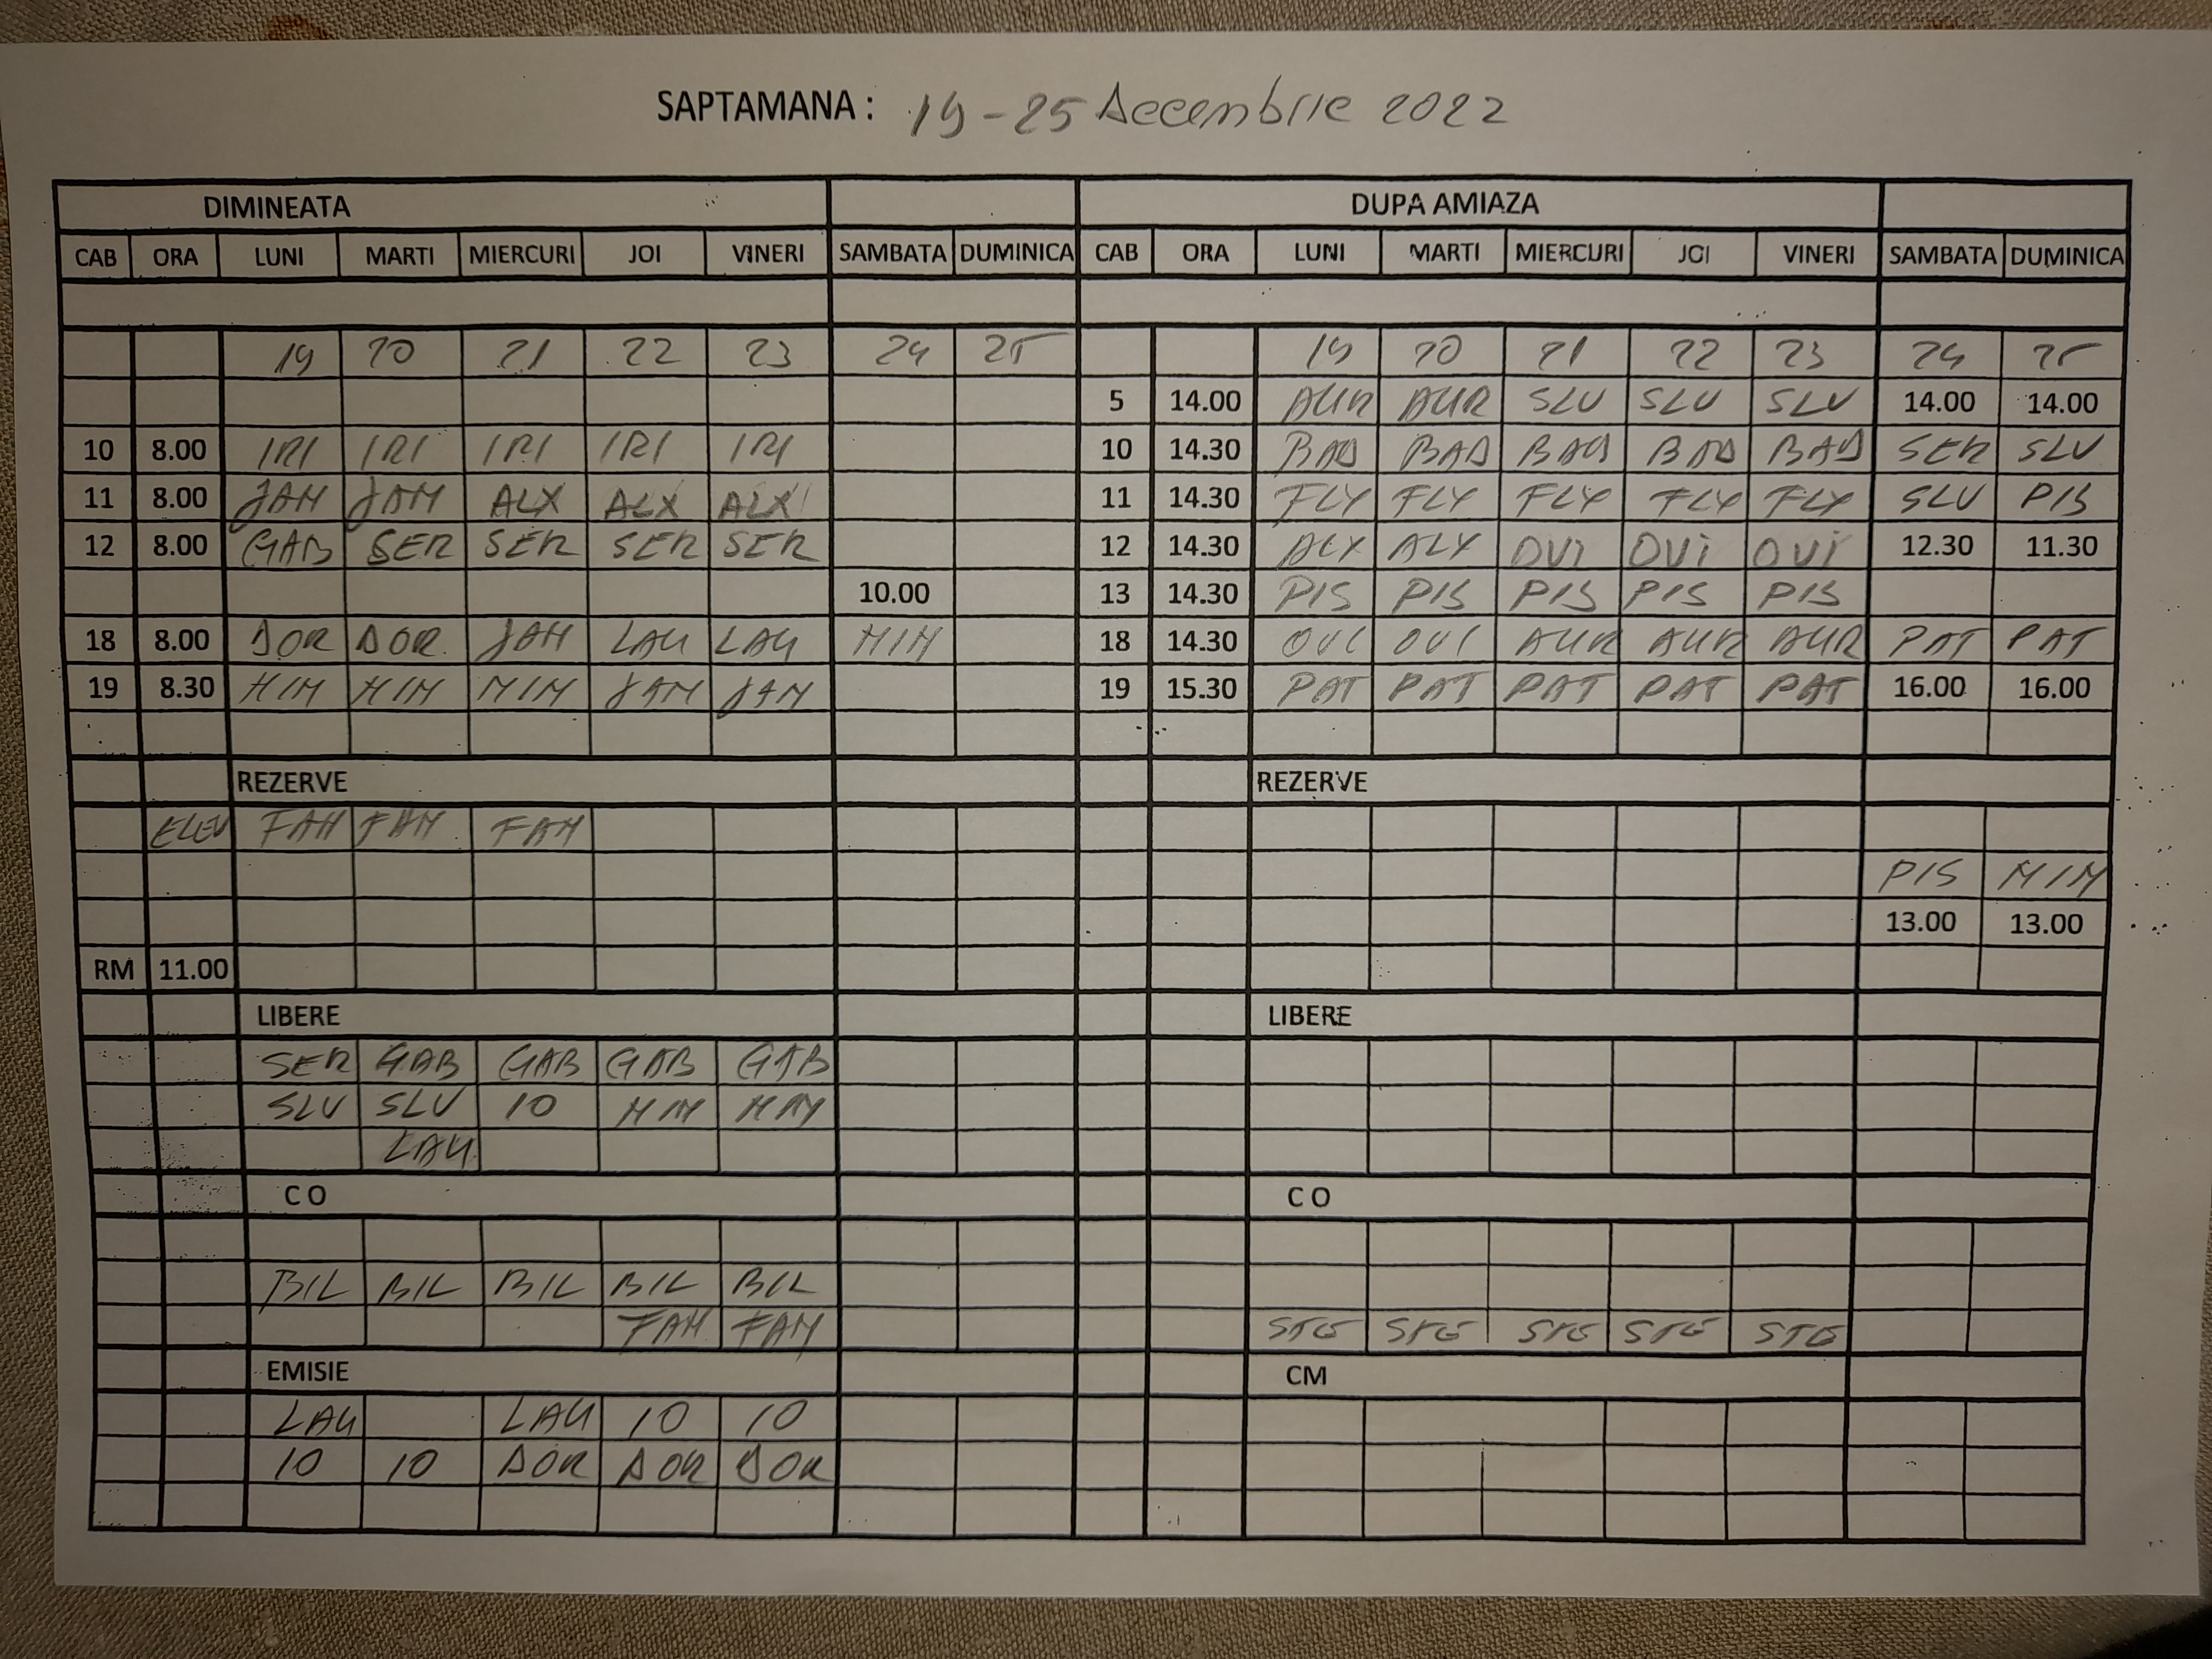 SAPTAMANA : 19-25 Decembrie 2022
DIMINEATA DUPA AMIAZA
CAB ORA LUNI MARTI MIERCURI JOI VINERI SAMBATA DUMINICA CAB ORA LUNI MARTI MIERCURI JOI VINERI SAMBATA DUMINICA
19 20 21 22 23 24 25 19 20 21 22 23 24 25
5 14.00 AUR AUR SLV SLV SLV 14.00 14.00
10 8.00 IRI IRI IRI IRI IRI 10 14.30 BAD BAD BAD BAD BAD SER SLV
11 8.00 JAM JAM ALX ALX ALX 11 14.30 FLY FLY FLY FLY FLY SLV PIS
12 8.00 GAB SER SER SER SER 12 14.30 ALX ALX OVI OVI OVI 12.30 11.30
10.00 13 14.30 PIS PIS PIS PIS PIS
18 8.00 DOR DOR JAM LAU LAU MIM 18 14.30 OVI OVI AUR AUR AUR PAT PAT
19 8.30 MIM MIM MIM JAM JAM 19 15.30 PAT PAT PAT PAT PAT 16.00 16.00
REZERVE REZERVE
ELEV FAM FAM FAM
PIS MIM
13.00 13.00
RM 11.00
LIBERE LIBERE
SER GAB GAB GAB GAB
SLV SLV 10 MIM MIM
LAU
C O C O
BIL BIL BIL BIL BIL
FAM FAM STE STE STE STE STE
EMISIE CM
LAU LAU 10 10
10 10 DOR DOR DOR